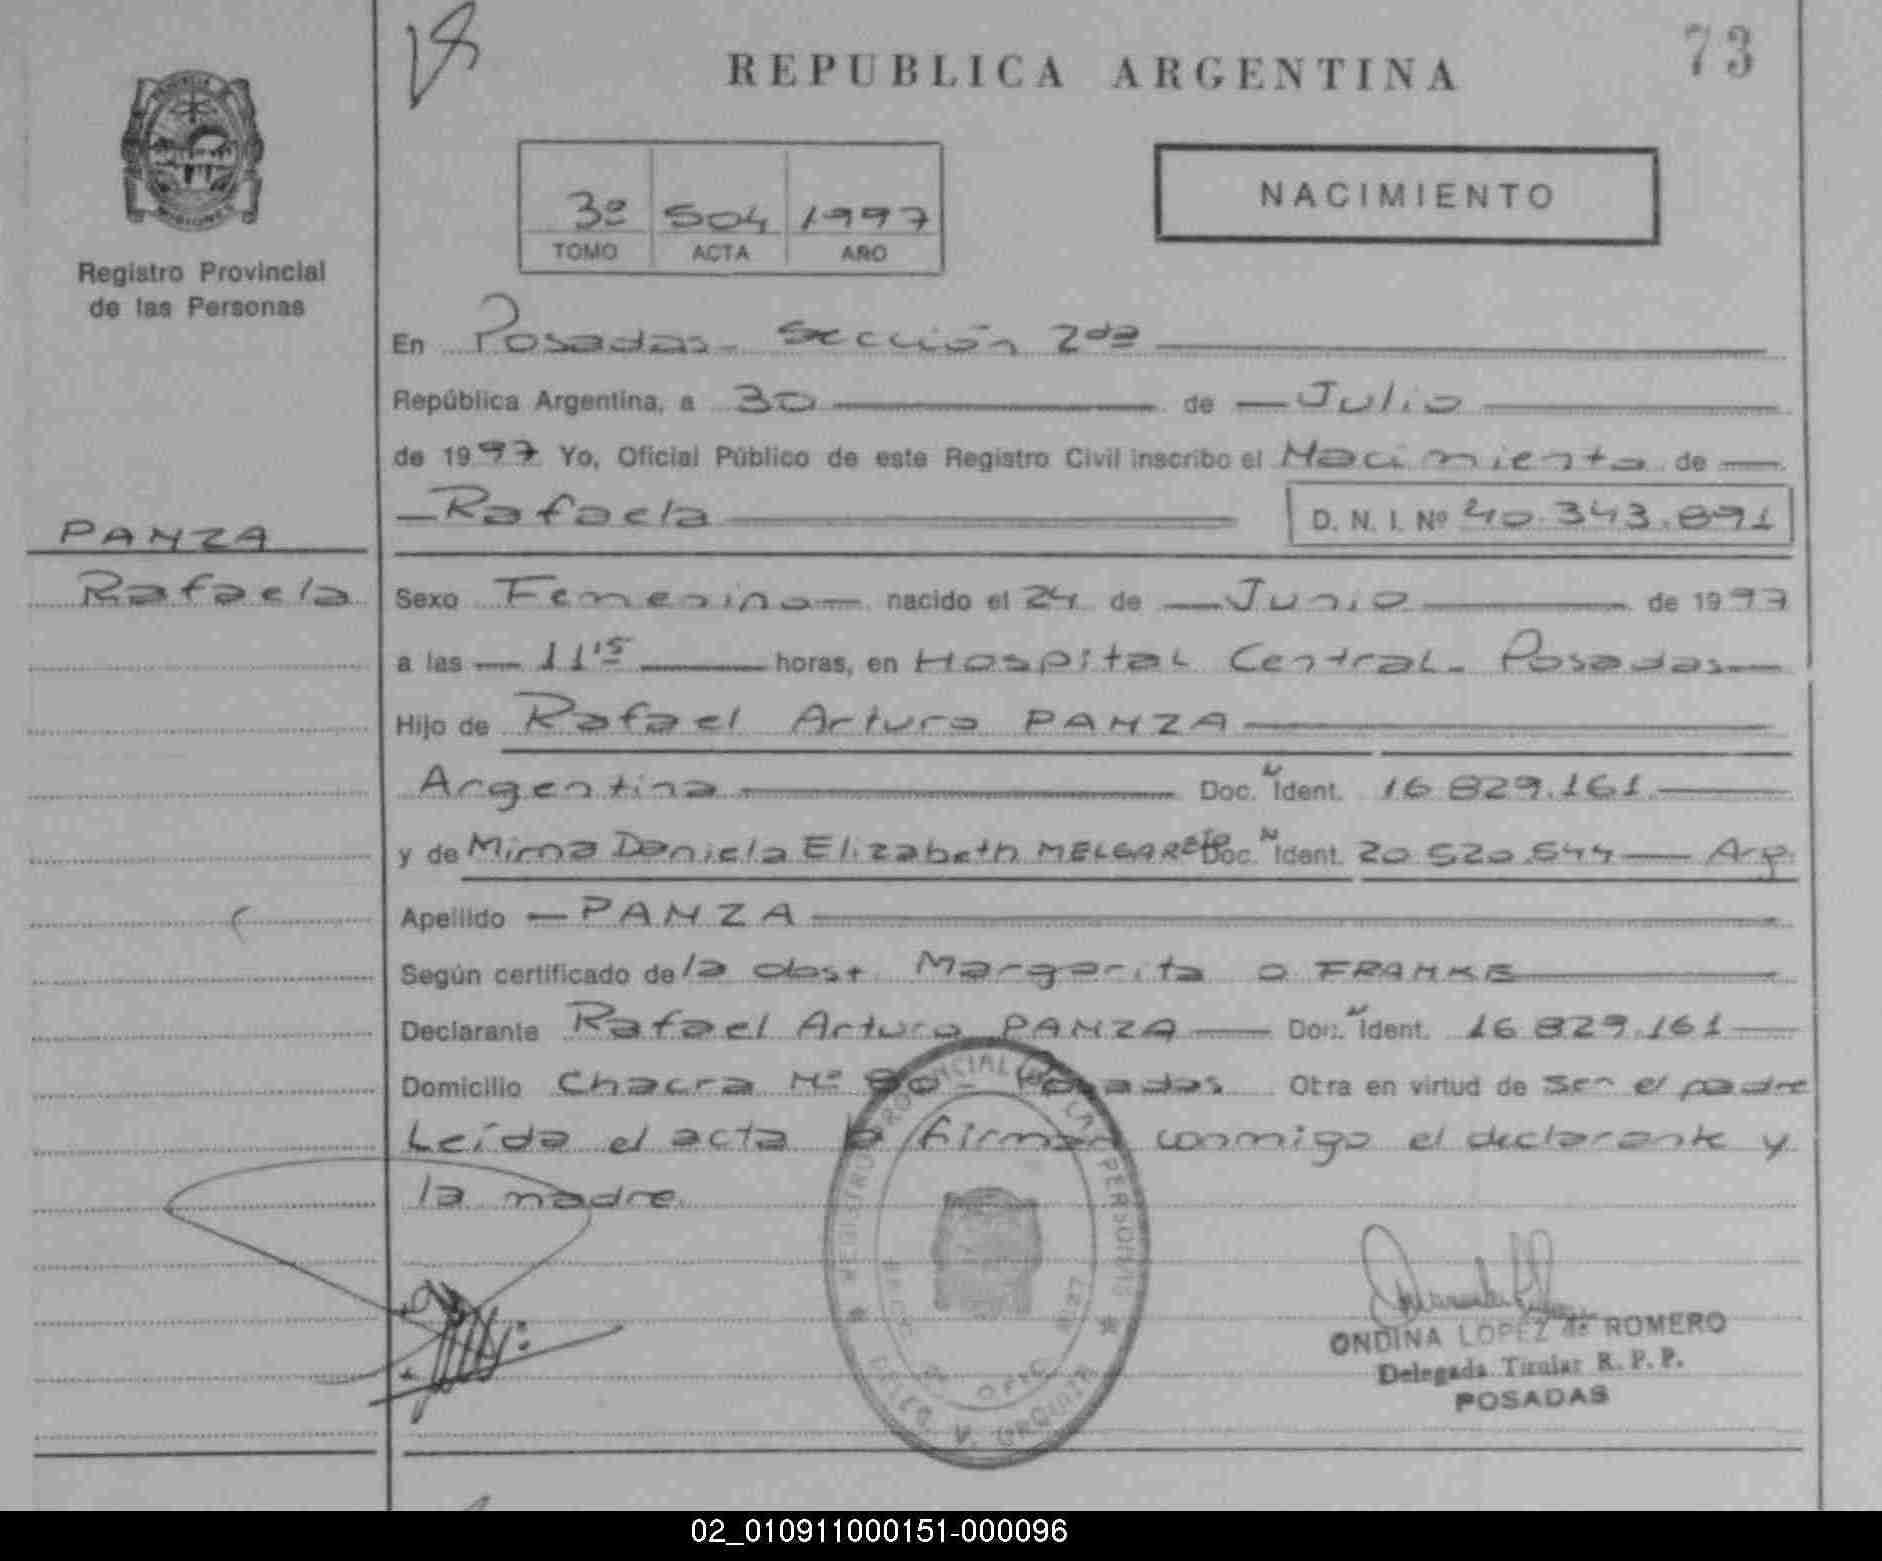 73
REPUBLICA ARGENTINA
NACIMIENTO
3º 504 1997
TOMO ACTA AÑO
Registro Provincial
de las Personas
En Posadas - Sección 2da
República Argentina, a 30 de Julio
de 1997 Yo, Oficial Público de este Registro Civil inscribo el Nacimiento de
Rafaela D. N. I. Nº 40.343.891
PANZA
Rafaela
Sexo Femenino nacido el 24 de Junio de 1997
a las 11 15 horas, en Hospital Central - Posadas
Hijo de Rafael Arturo PANZA
Argentina Doc. Ident. 16.829.161
y de Mirna Daniela Elizabeth MELGAREJO Doc. Ident. 20.520.544 Arg.
Apellido PANZA
Según certificado de la obst. Margarita O FRANKE
Declarante Rafael Arturo PANZA Doc. Ident. 16.829.161
Domicilio Chacra Nº 90 - Posadas Otra en virtud de ser el padre
Leída el acta la firman conmigo el declarante y
la madre.
REGISTRO PROVINCIAL DE LAS PERSONAS
DELEG. V. URQUIZA
ONDINA LOPEZ de ROMERO
Delegada Titular R. P. P.
POSADAS
02_010911000151-000096